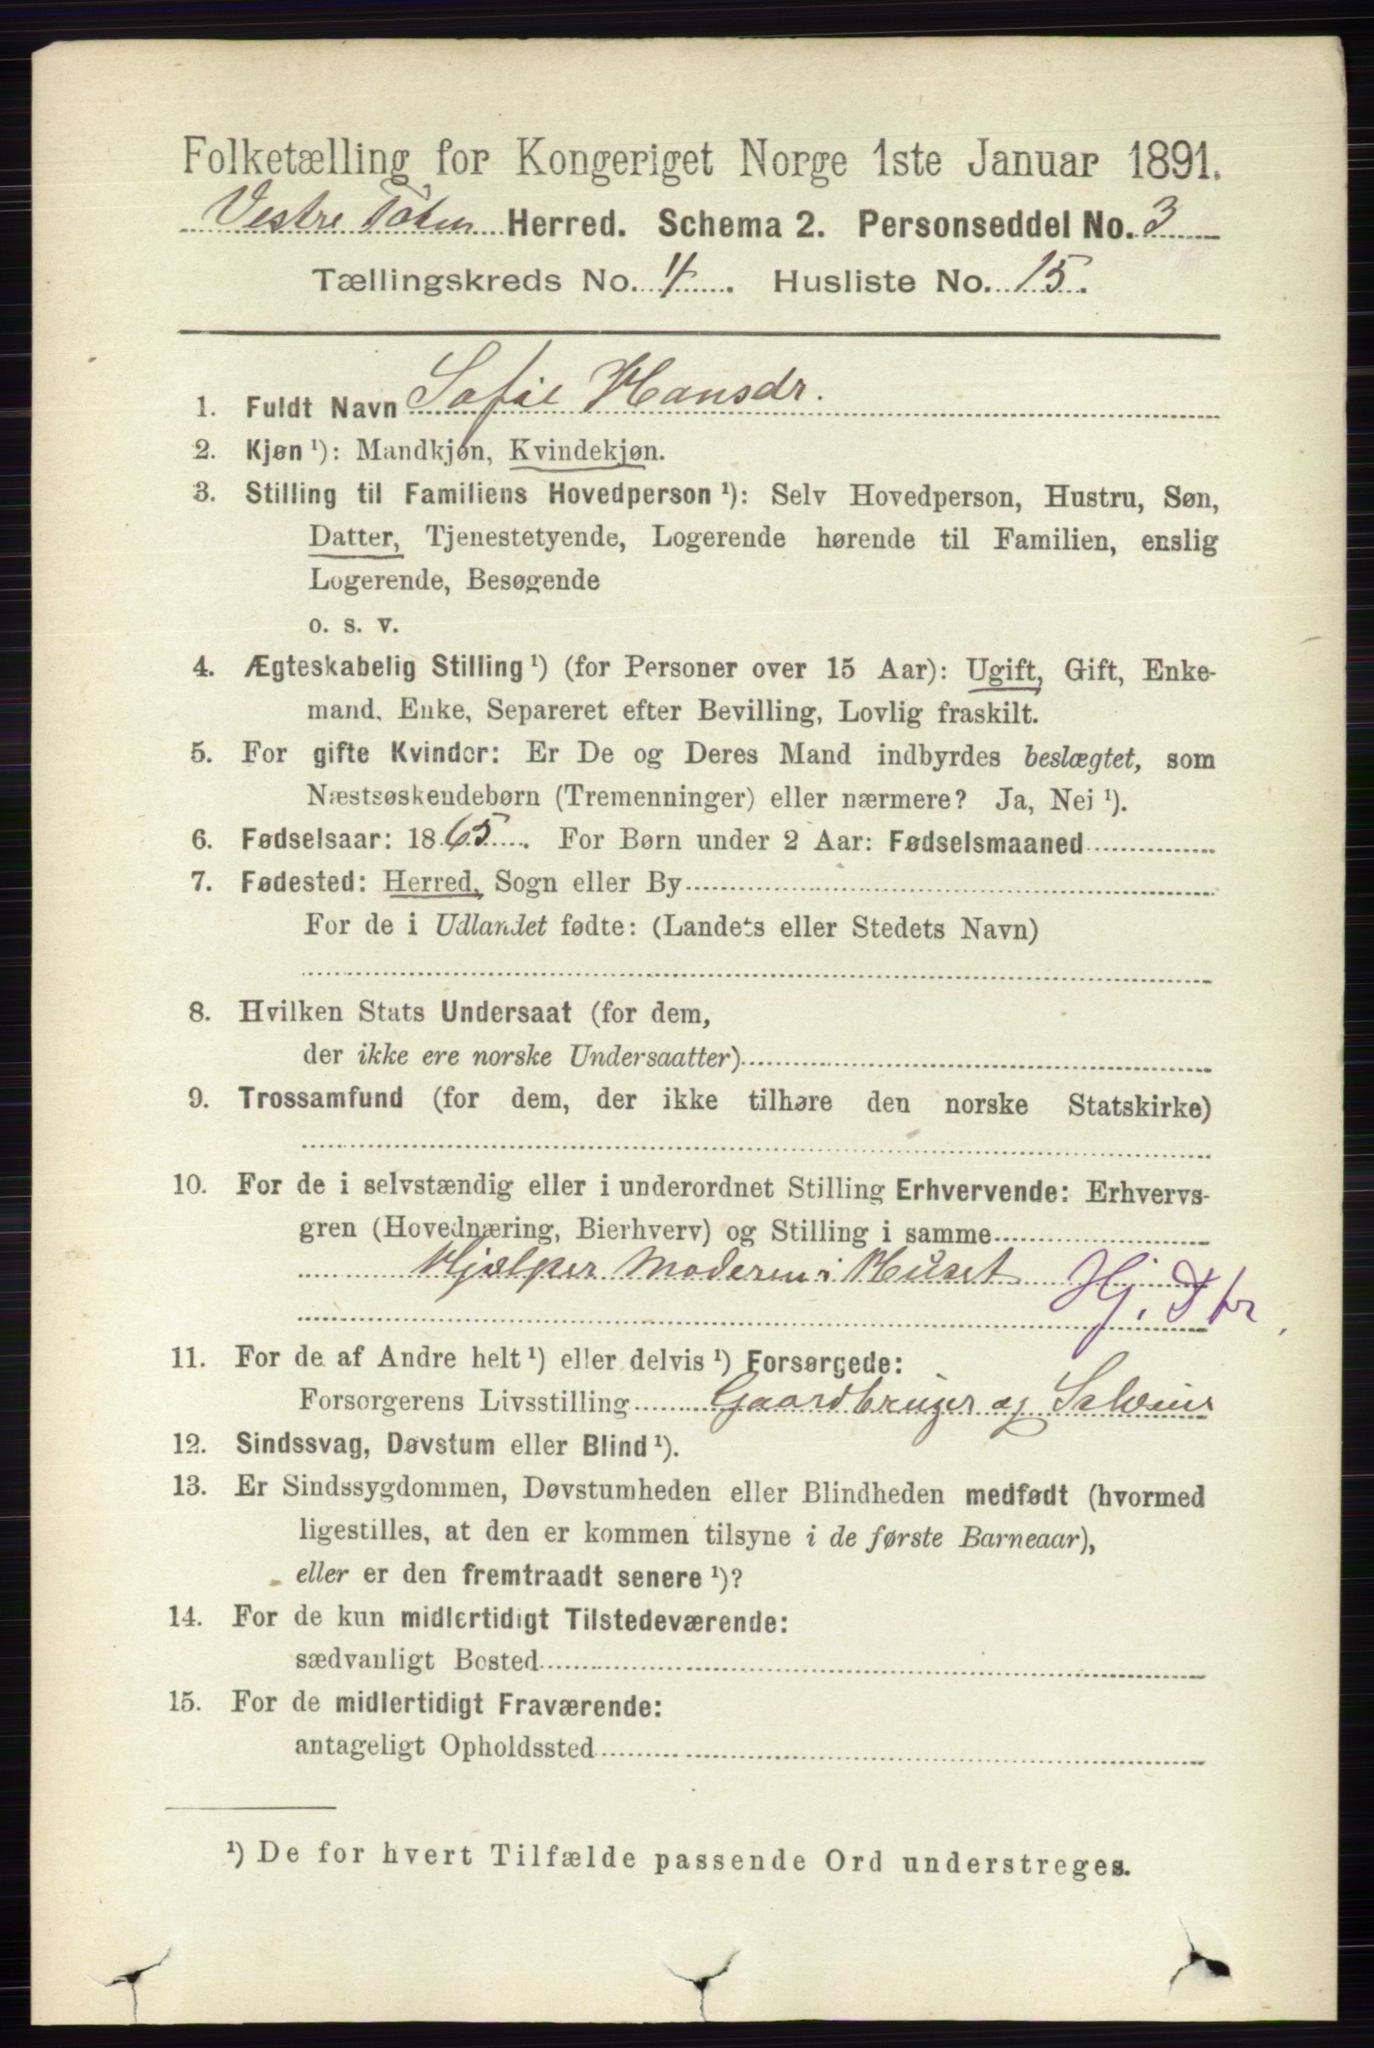 Folketælling for Kongeriget Norge 1ste Januar 1891.
Vestre Toten Herred. Schema 2. Personseddel No. 3
Tællingskreds No. 4. Husliste No. 15.
1. Fuldt Navn Sofie Hansdr.
2. Kjøn ¹): Mandkjøn, Kvindekjøn.
3. Stilling til Familiens Hovedperson ¹): Selv Hovedperson, Hustru, Søn,
Datter, Tjenestetyende, Logerende hørende til Familien, enslig
Logerende, Besøgende
o. s. v.
4. Ægteskabelig Stilling ¹) (for Personer over 15 Aar): Ugift, Gift, Enke-
mand, Enke, Separeret efter Bevilling, Lovlig fraskilt.
5. For gifte Kvinder: Er De og Deres Mand indbyrdes beslægtet, som
Næstsøskendebørn (Tremenninger) eller nærmere? Ja, Nei ¹).
6. Fødselsaar: 1865. For Børn under 2 Aar: Fødselsmaaned
7. Fødested: Herred, Sogn eller By
For de i Udlandet fødte: (Landets eller Stedets Navn)
8. Hvilken Stats Undersaat (for dem,
der ikke ere norske Undersaatter)
9. Trossamfund (for dem, der ikke tilhøre den norske Statskirke)
10. For de i selvstændig eller i underordnet Stilling Erhvervende: Erhvervs-
gren (Hovednæring, Bierhverv) og Stilling i samme
Hjælper Moderen i Huset Hj. Dtr
11. For de af Andre helt ¹) eller delvis ¹) Forsørgede:
Forsørgerens Livsstilling Gaardbruger og
12. Sindssvag, Døvstum eller Blind ¹).
13. Er Sindssygdommen, Døvstumheden eller Blindheden medfødt (hvormed
ligestilles, at den er kommen tilsyne i de første Barneaar),
eller er den fremtraadt senere ¹)?
14. For de kun midlertidigt Tilstedeværende:
sædvanligt Bosted
15. For de midlertidigt Fraværende:
antageligt Opholdssted
¹) De for hvert Tilfælde passende Ord understreges.